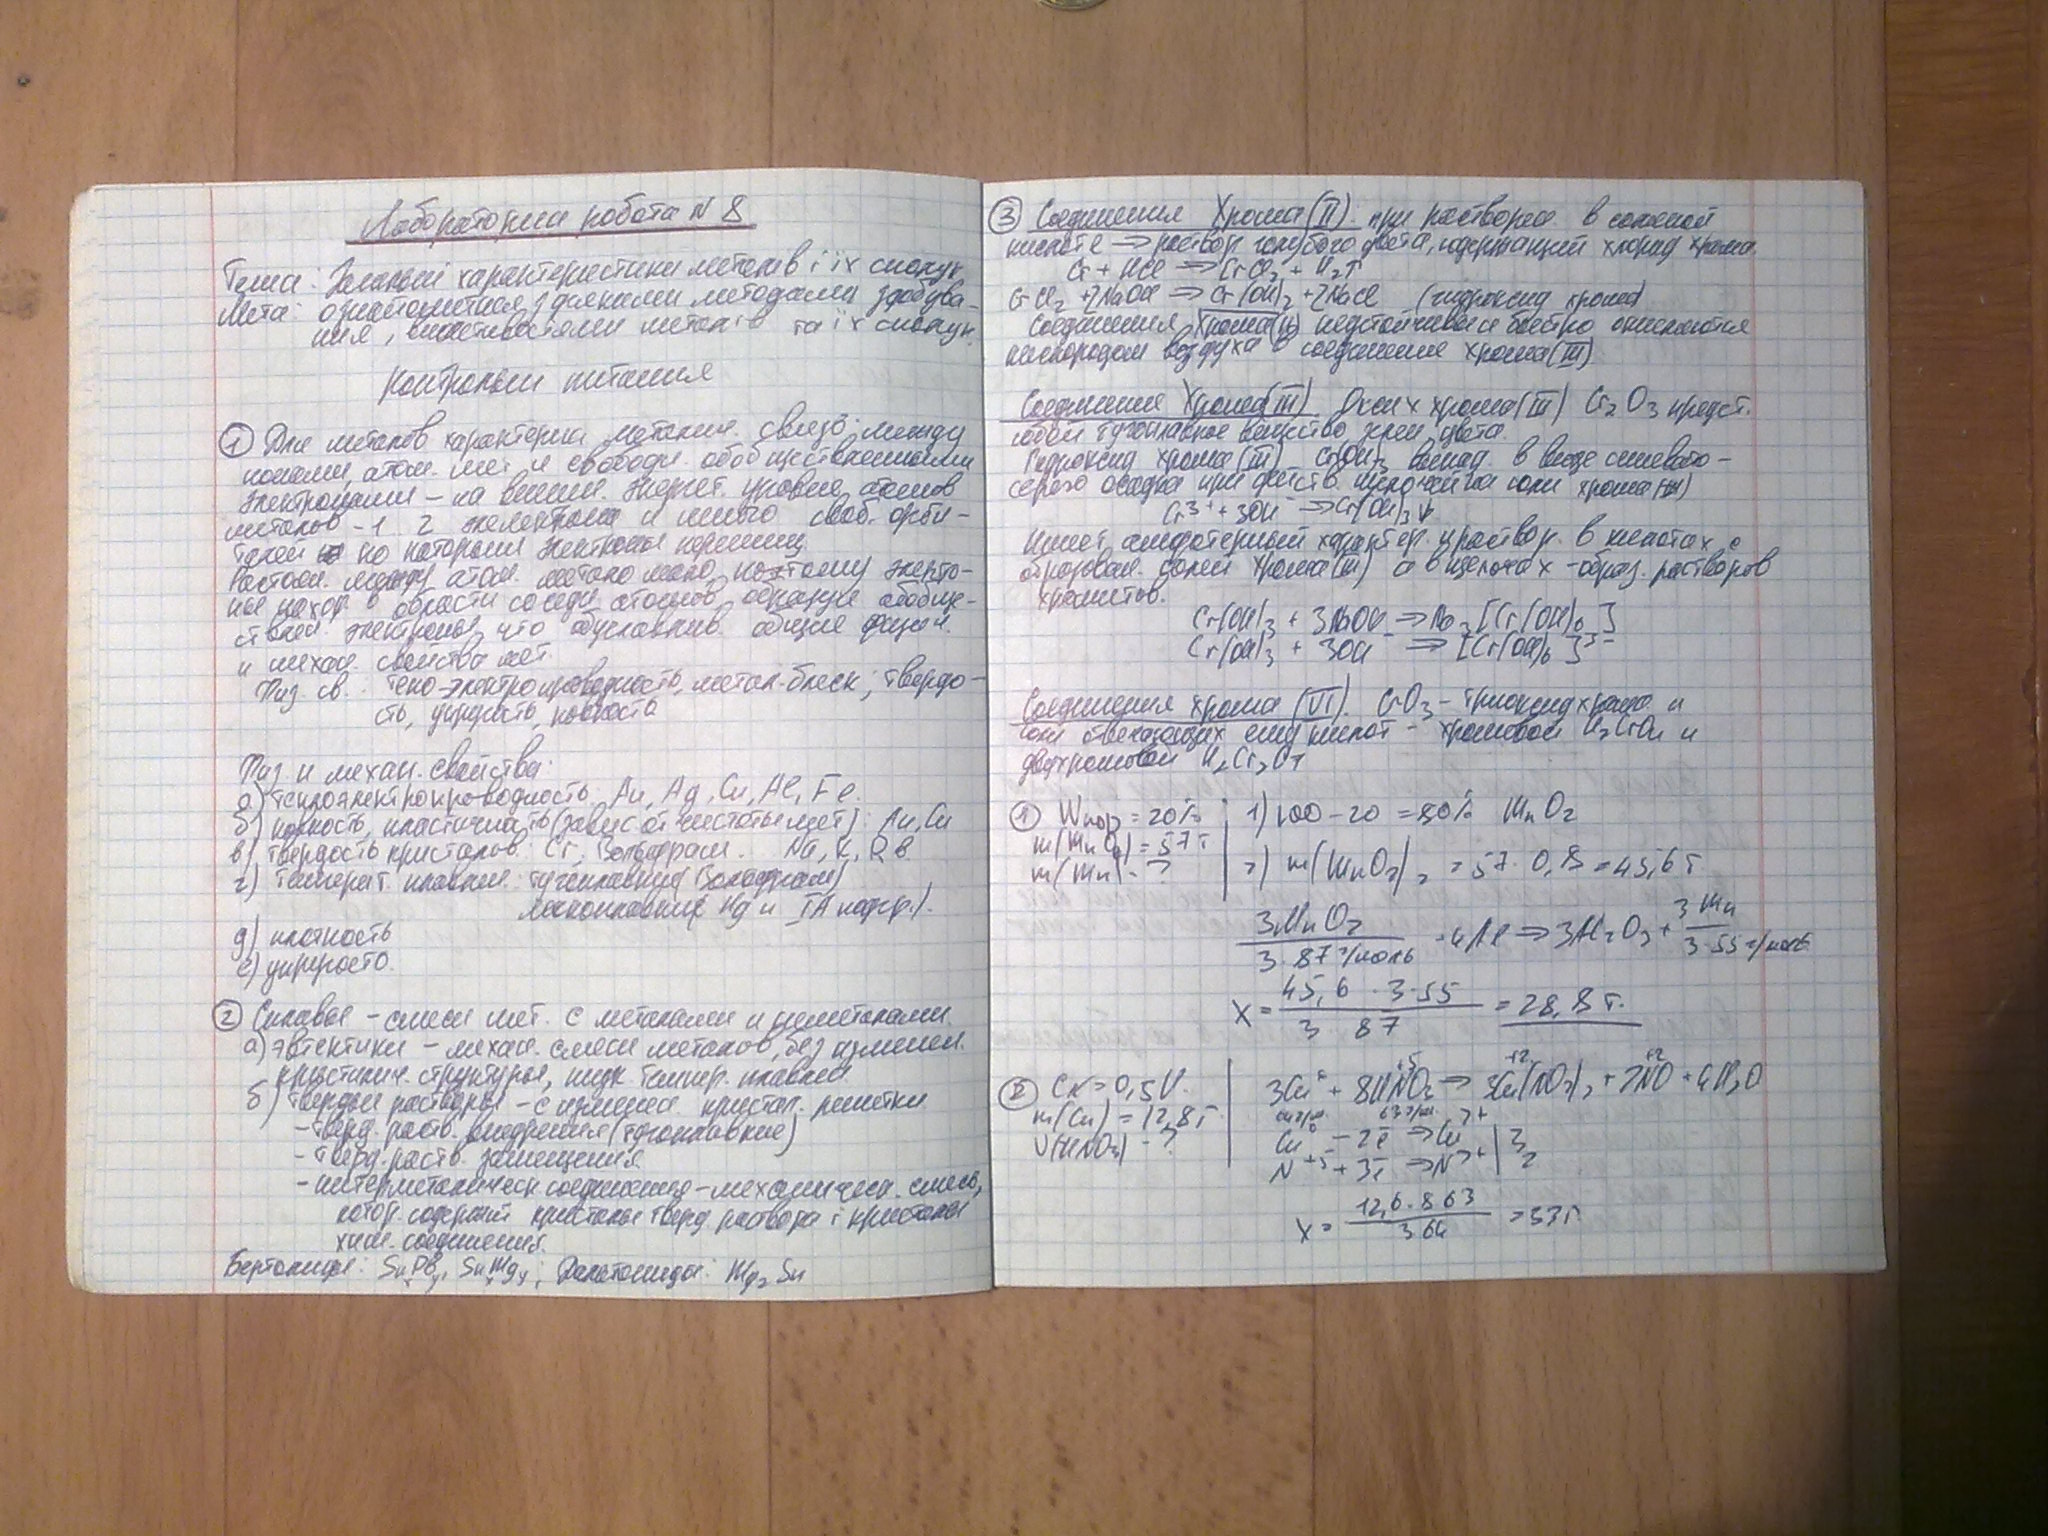 Лабораторна робота N 8
Тема: Загальні характеристики металів і їх сполук
Мета: ознайомитися з деякими методами здобува-
ння, властивостями металів та їх сполук.
Контрольні питання
1 Для металов характерна металич. связь между
ионами, атом. мет и свободн. обобществленными
электронами - на внешн. энергет. уровне атомов
металов - 1 2 электрона и много своб. орби-
талей по которым электроны перемещ
Расстоян. между атом. метала мало, поэтому электро-
ны наход. в области соседн атомов, образуя обобще-
ствлен. электроны, что обуславлив. общие физич.
и механ. свойства мет.
Физ. св.: тепло-электропроводность, метал. блеск; твердо-
сть, упругость, ковкость
Физ и механ. свойства:
а) теплоэлектропроводность: Au, Ag, Cu, Al, Fe.
б) ковкость, пластичность (завис от чистоты мет): Au, Cu
в) твердость кристалов: Cr, Вольфрам. Na, K, Rb
г) температ. плавлен: тугоплавкие (Вольфрам)
легкоплавкие Hg и IA подгр.).
д) плотность
е) упругость.
2 Сплавы - смеси мет. с металами и неметалами
а) эвтектики - механ. смеси металов, без изменен.
кристалич. структуры, низк. темпер. плавлен.
б) твердые растворы - с изменен. кристал. решетки
- тверд. раств. внедрения (тугоплавкие)
- тверд. раств. замещения
- интерметалическ соединения - механическ. смесь,
котор. содержит кристалы тверд. раствора і кристалы
хим. соединения.
Бертолиды: SnxPby, SnxMgy; Дальтониды: Mg2Sn
3 Соединения Хрома (II). при растворен. в соляной
кислоте ⇒ раствор голубого цвета, содержащий хлорид хрома
Cr + HCl ⇒ CrCl2 + H2↑
CrCl2 + 2NaOH ⇒ Cr(OH)2 + 2NaCl (гидроксид хрома)
Соединения Хрома (II) неустойчивые и быстро окисляются
кислородом воздуха в соединение хрома (III)
Соединения Хрома (III) Оксид хрома (III) Cr2O3 предст.
собой тугоплавкое вещество зелен. цвета.
Гидроксид хрома (III) Cr(OH)3 выпад. в виде синевато-
серого осадка при действ. щелочей на соли хрома (III)
Cr3+ + 3OH- ⇒ Cr(OH)3↓
Имеет амфотерный характер. и раствор. в кислотах с
образован. солей Хрома (III) а в щелочах - образ. растворов
хромитов.
Cr(OH)3 + 3NaOH ⇒ Na3[Cr(OH)6]
Cr(OH)3 + 3OH- ⇒ [Cr(OH)6]3-
Соединения хрома (VI). CrO3 - триоксид хрома и
отвечающих ему кислот - хромовой H2CrO4 и
двухромовой H2Cr2O7
1 Wпор = 20% 1) 100 - 20 = 80% MnO2
m(MnO2) = 57 г
m(Mn) - ? 2) m(MnO2)2 = 57 · 0,8 = 45,6 г
3MnO2 3 Mn
+ 4Al ⇒ 3Al2O3 +
3 · 87 г/моль 3 · 55 г/моль
X = 45,6 · 3 · 55 / 3 · 87 = 28,8 г.
2 CN = 0,5 V. 3Cu + 8HNO3 ⇒ 3Cu(NO3)2 + 2NO + 4H2O
m(Cu) = 12,8 г
V(HNO3) - ? Cu - 2e ⇒ Cu2+ | 3
N+5 + 3e ⇒ N2+ | 2
X = 12,6 · 8 63 / 3 64 = 33 г